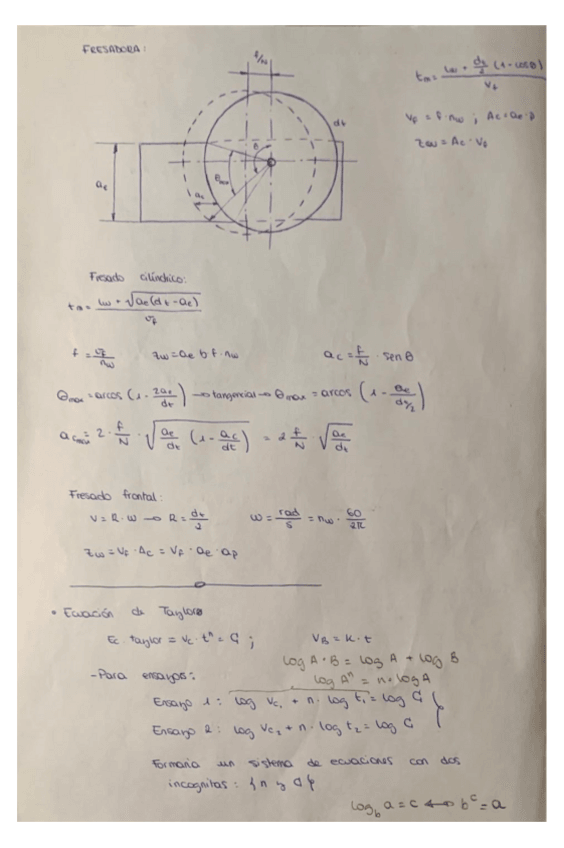 FRESADORA:
f/N
t_m = (lw + d_t/2 (1 - cosθ)) / V_f
d_t
V_f = f · n_w ; A_c = a_e · p
Z_w = A_c · V_f
θ
θ_max
a_e
a_c
Fresado cilíndrico:
t_m = (lw + √(a_e(d_t - a_e))) / v_f
f = v_f / n_w    z_w = a_e b f · n_w    a_c = f/N · sen θ
θ_max = arcos (1 - 2a_e/d_t) → tangencial → θ_max = arcos (1 - a_e/(d_t/2))
a_c max = 2 · f/N · √(a_e/d_t (1 - a_c/dt)) = 2 f/N · √(a_e/d_t)
Fresado frontal:
V = R · W → R = d_t/2    W = rad/s = n_w · 60/2π
Z_w = V_f · A_c = V_f · a_e · a_p
• Ecuación de Taylor
Ec. taylor = V_c · t^n = C ;    V_B = K · t
log A · B = log A + log B
- Para ensayos:    log A^n = n · log A
Ensayo 1: log V_c1 + n · log t_1 = log C
Ensayo 2: log V_c2 + n · log t_2 = log C
Formaría un sistema de ecuaciones con dos
incognitas: {n y C}
log_b a = c ↔ b^c = a